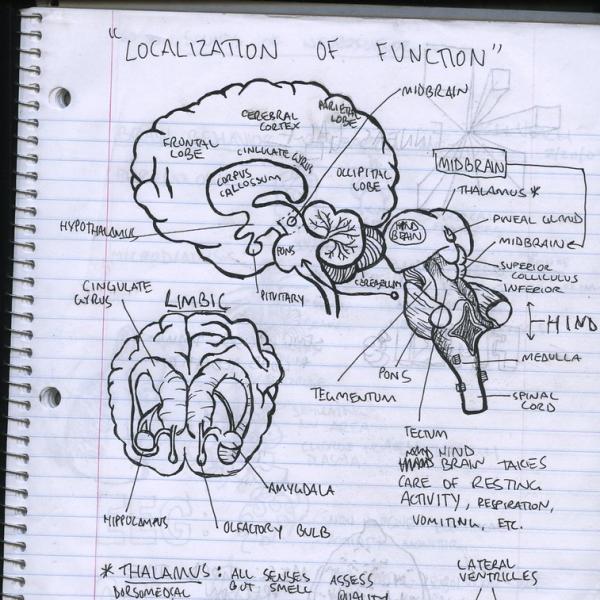 "LOCALIZATION OF FUNCTION"
MIDBRAIN
PARIETAL
LOBE
CEREBRAL
CORTEX
FRONTAL
LOBE
CINGULATE GYRUS
CORPUS
CALLOSUM
OCCIPITAL
LOBE
MIDBRAIN
THALAMUS *
PINEAL GLAND
HIND
BRAIN
MIDBRAIN
HYPOTHALAMUS
PONS
SUPERIOR
COLLICULUS
INFERIOR
CEREBELLUM
PITUITARY
CINGULATE
GYRUS
LIMBIC
HIND
MEDULLA
PONS
SPINAL
CORD
TEGMENTUM
TECTUM
HIND
BRAIN TAKES
CARE OF RESTING
ACTIVITY, RESPIRATION,
VOMITING, ETC.
AMYGDALA
HIPPOCAMPUS
OLFACTORY BULB
* THALAMUS: ALL SENSES
BUT SMELL
DORSOMEDIAL
ASSESS
QUALITY
LATERAL
VENTRICLES